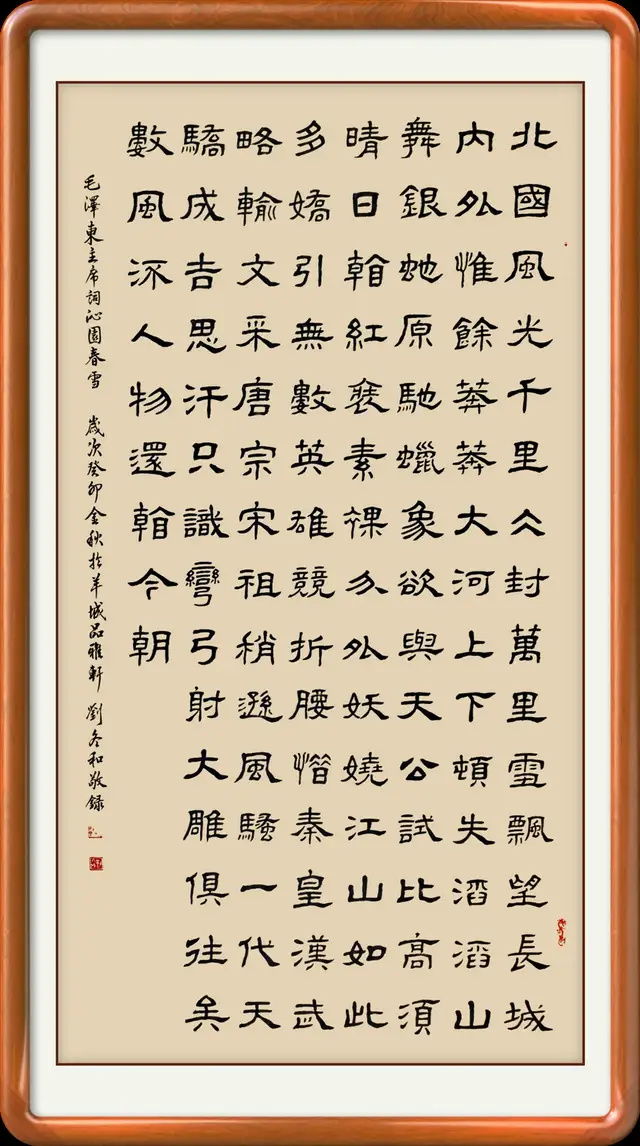 北國風光千里仌封萬里雪飄望長城
内外惟餘莽莽大河上下頓失滔滔山
舞銀虵原馳蠟象欲與天公試比高須
晴日看紅裝素裹分外妖嬈江山如此
多嬌引無數英雄競折腰惜秦皇漢武
略輸文采唐宗宋祖稍遜風騷一代天
驕成吉思汗只識彎弓射大雕俱往矣
數風流人物還看今朝
毛澤東主席詞沁園春雪 歲次癸卯金秋於羊城品雅軒 劉冬和敬録